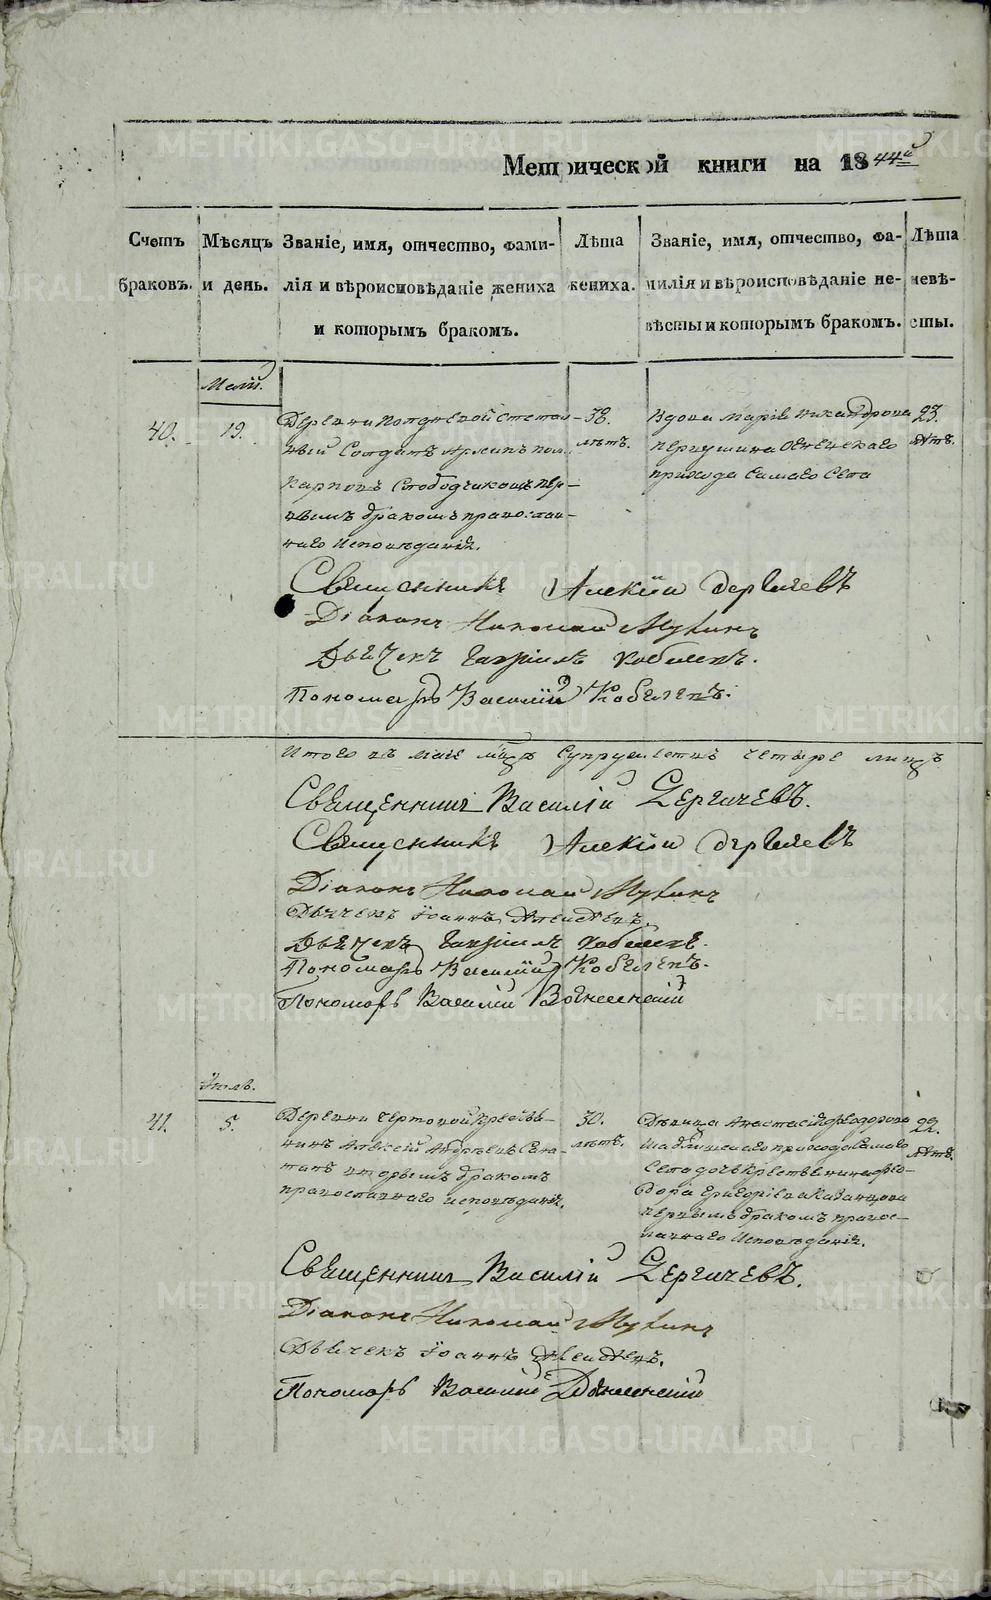 Метрической книги на 1844й
Счетъ браковъ.
Мѣсяцъ и день.
Званіе, имя, отчество, фами-
лія и вѣроисповѣданіе жениха
и которымъ бракомъ.
Лѣта
жениха.
Званіе, имя, отчество, фа-
милія и вѣроисповѣданіе не-
вѣсты и которымъ бракомъ.
Лѣта
невѣ-
сты.
Маій.
40.
19.
Деревни Полдневой
Солдатъ Архипъ Пол
карповъ Слободчиковъ пер-
вымъ бракомъ православ-
наго исповѣданія.
38.
лѣтъ.
Вдова Марія Никандрова
прихода Села
23.
лѣтъ.
Священникъ Алексій Дергачевъ
Діаконъ Николай Мухинъ
Дьячекъ Гавріилъ Кобелевъ.
Пономарь Василій Кобелевъ.
Итого въ маіе мцѣ четыре лица
Священникъ Василій Дергачевъ.
Священникъ Алексій Дергачевъ
Діаконъ Николай Мухинъ
Дьячекъ Іоаннъ
Дьячекъ Гавріилъ Кобелевъ.
Пономарь Василій Кобелевъ.
Пономарь Василій Вознесенскій
Іюль.
41.
5.
Деревни Чертовой Кресть-
нинъ Алексій Андреевъ
вторымъ бракомъ
православнаго исповѣданія.
30.
лѣтъ.
Дѣвица Анастасія Феодорова
прихода
дочь Крестьянина Фео-
дора Григоріева Казанцова
первымъ бракомъ правос-
лавнаго Исповѣданія.
22.
лѣтъ.
Священникъ Василій Дергачевъ.
Діаконъ Николай Мухинъ
Дьячекъ Іоаннъ
Пономарь Василій Вознесенскій
METRIKI.GASO-URAL.RU